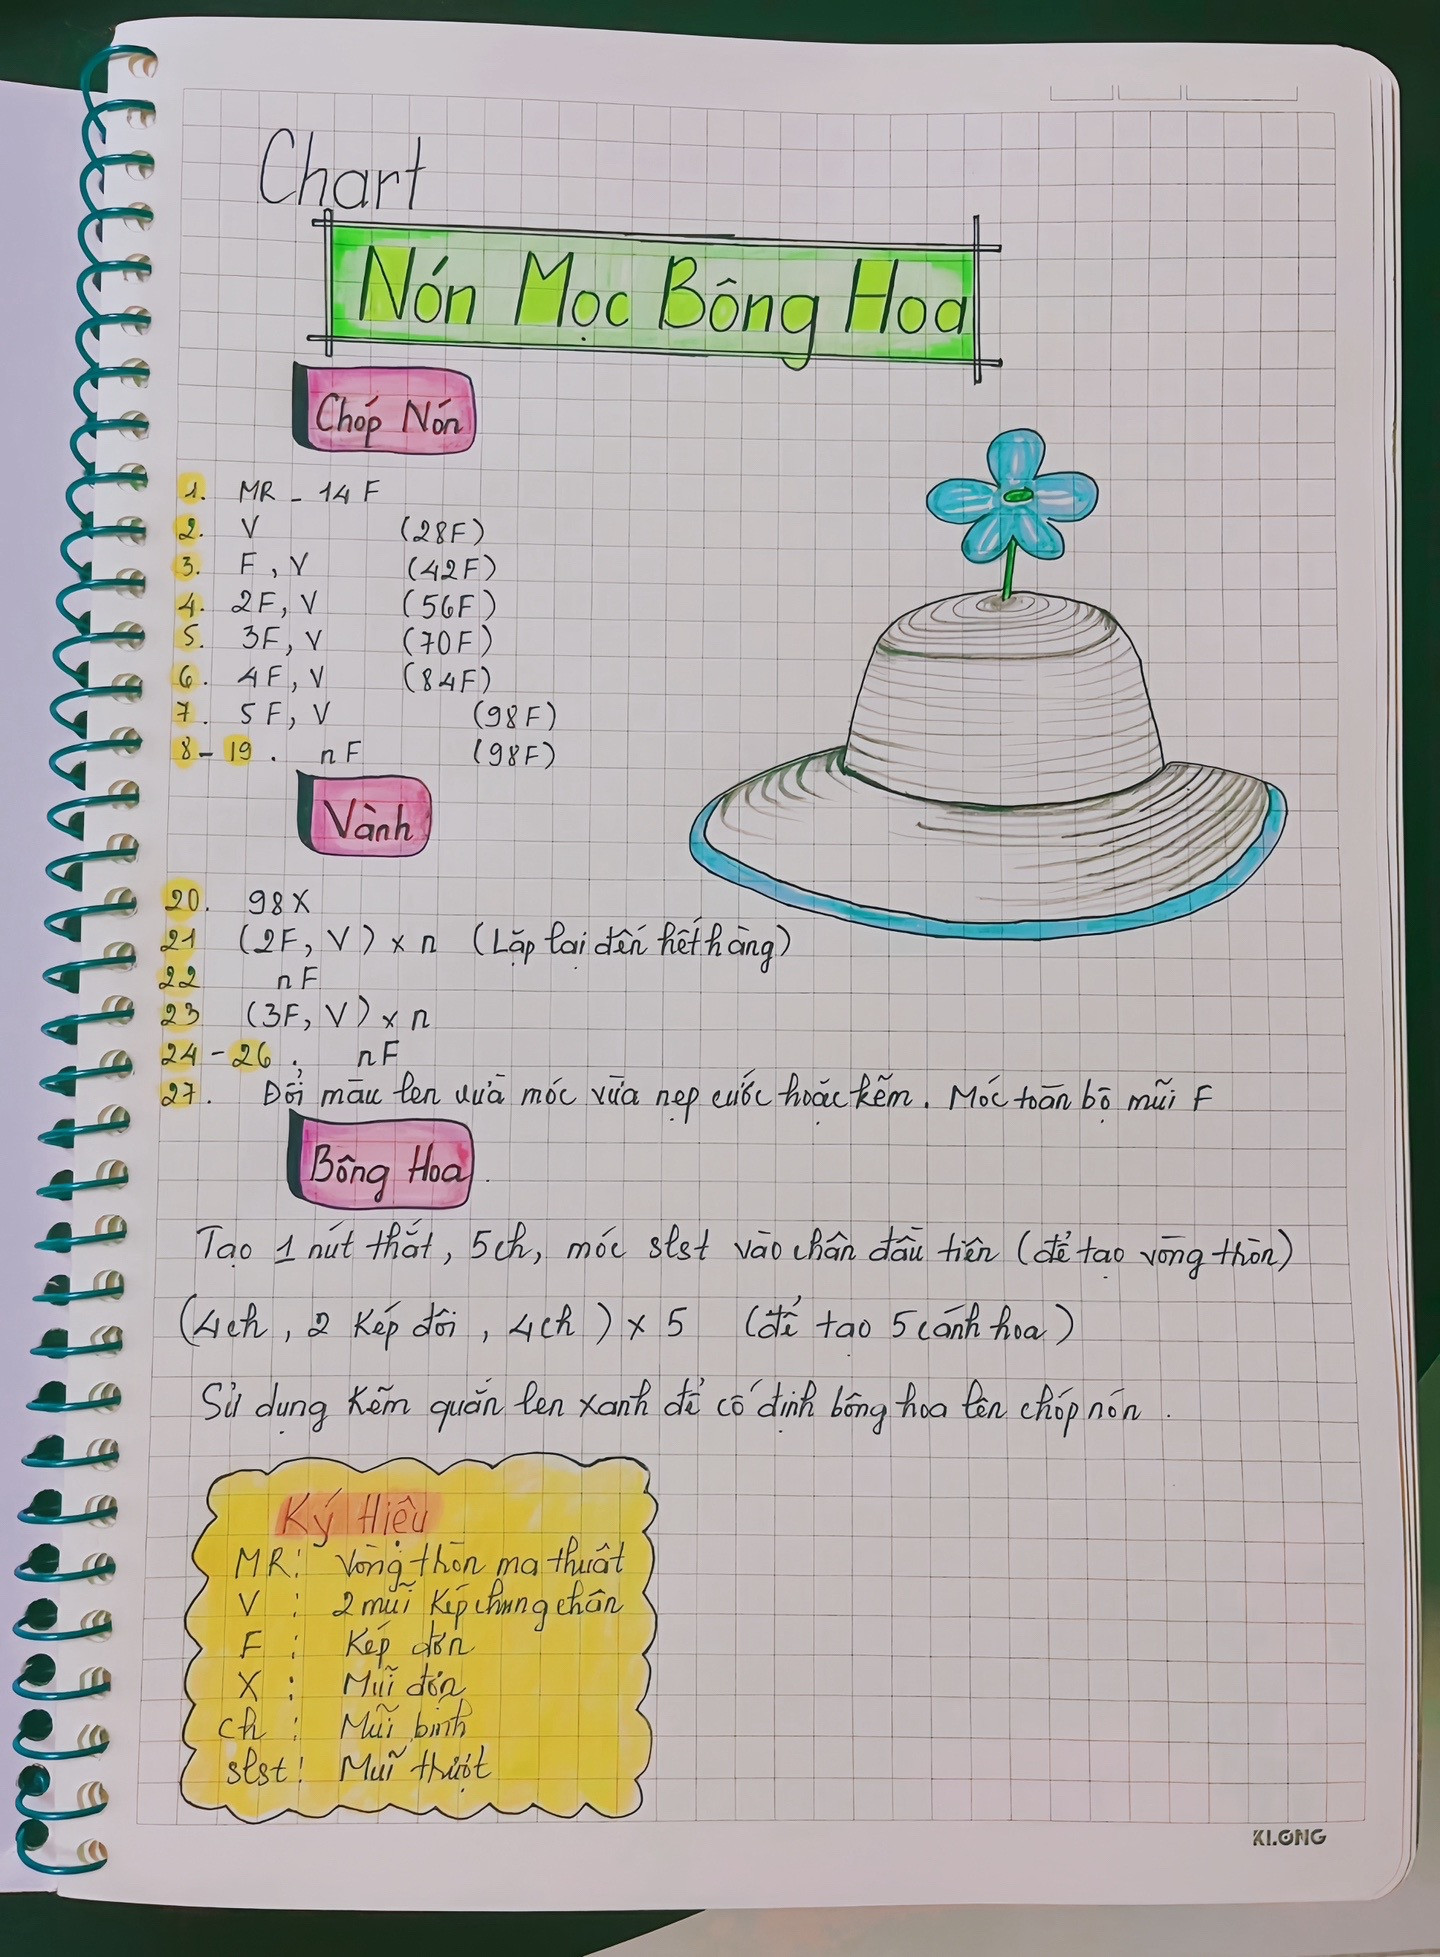 Chart
Nón Mọc Bông Hoa
Chóp Nón
1. MR - 14F
2. V (28F)
3. F, V (42F)
4. 2F, V (56F)
5. 3F, V (70F)
6. 4F, V (84F)
7. 5F, V (98F)
8-19. nF (98F)
Vành
20. 98X
21 (2F, V) x n (Lặp lại đến hết hàng)
22 nF
23 (3F, V) x n
24-26. nF
27. Đổi màu len vừa móc vừa nẹp cước hoặc kẽm. Móc toàn bộ mũi F
Bông Hoa.
Tạo 1 nút thắt, 5ch, móc slst vào chân đầu tiên (để tạo vòng tròn)
(4ch, 2 kép đôi, 4ch) x 5 (để tạo 5 cánh hoa)
Sử dụng kẽm quấn len xanh để cố định bông hoa lên chóp nón.
Ký Hiệu
MR: Vòng tròn ma thuật
V: 2 mũi kép chung chân
F: Kép đơn
X: Mũi đơn
ch: Mũi bính
slst: Mũi trượt
KLONG